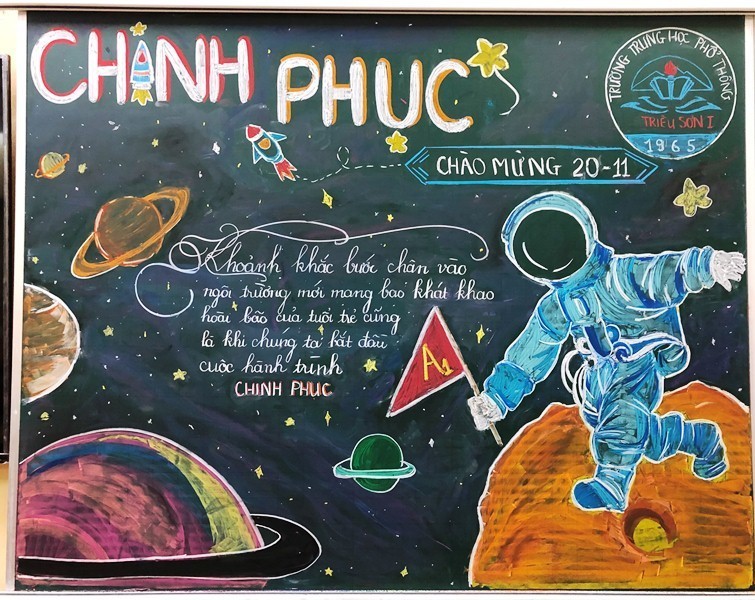 CHINH PHUC
TRƯỜNG TRUNG HỌC PHỔ THÔNG
TRIỆU SƠN I
1965
CHÀO MỪNG 20-11
Khoảnh khắc bước chân vào
ngôi trường mới mang bao khát khao
hoài bão của tuổi trẻ cũng
là khi chúng ta bắt đầu
cuộc hành trình
CHINH PHUC
A1